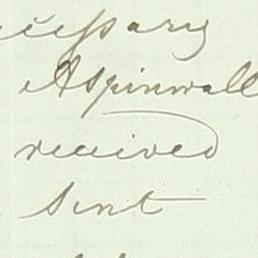 ecessary
Aspinwall
received
Sent